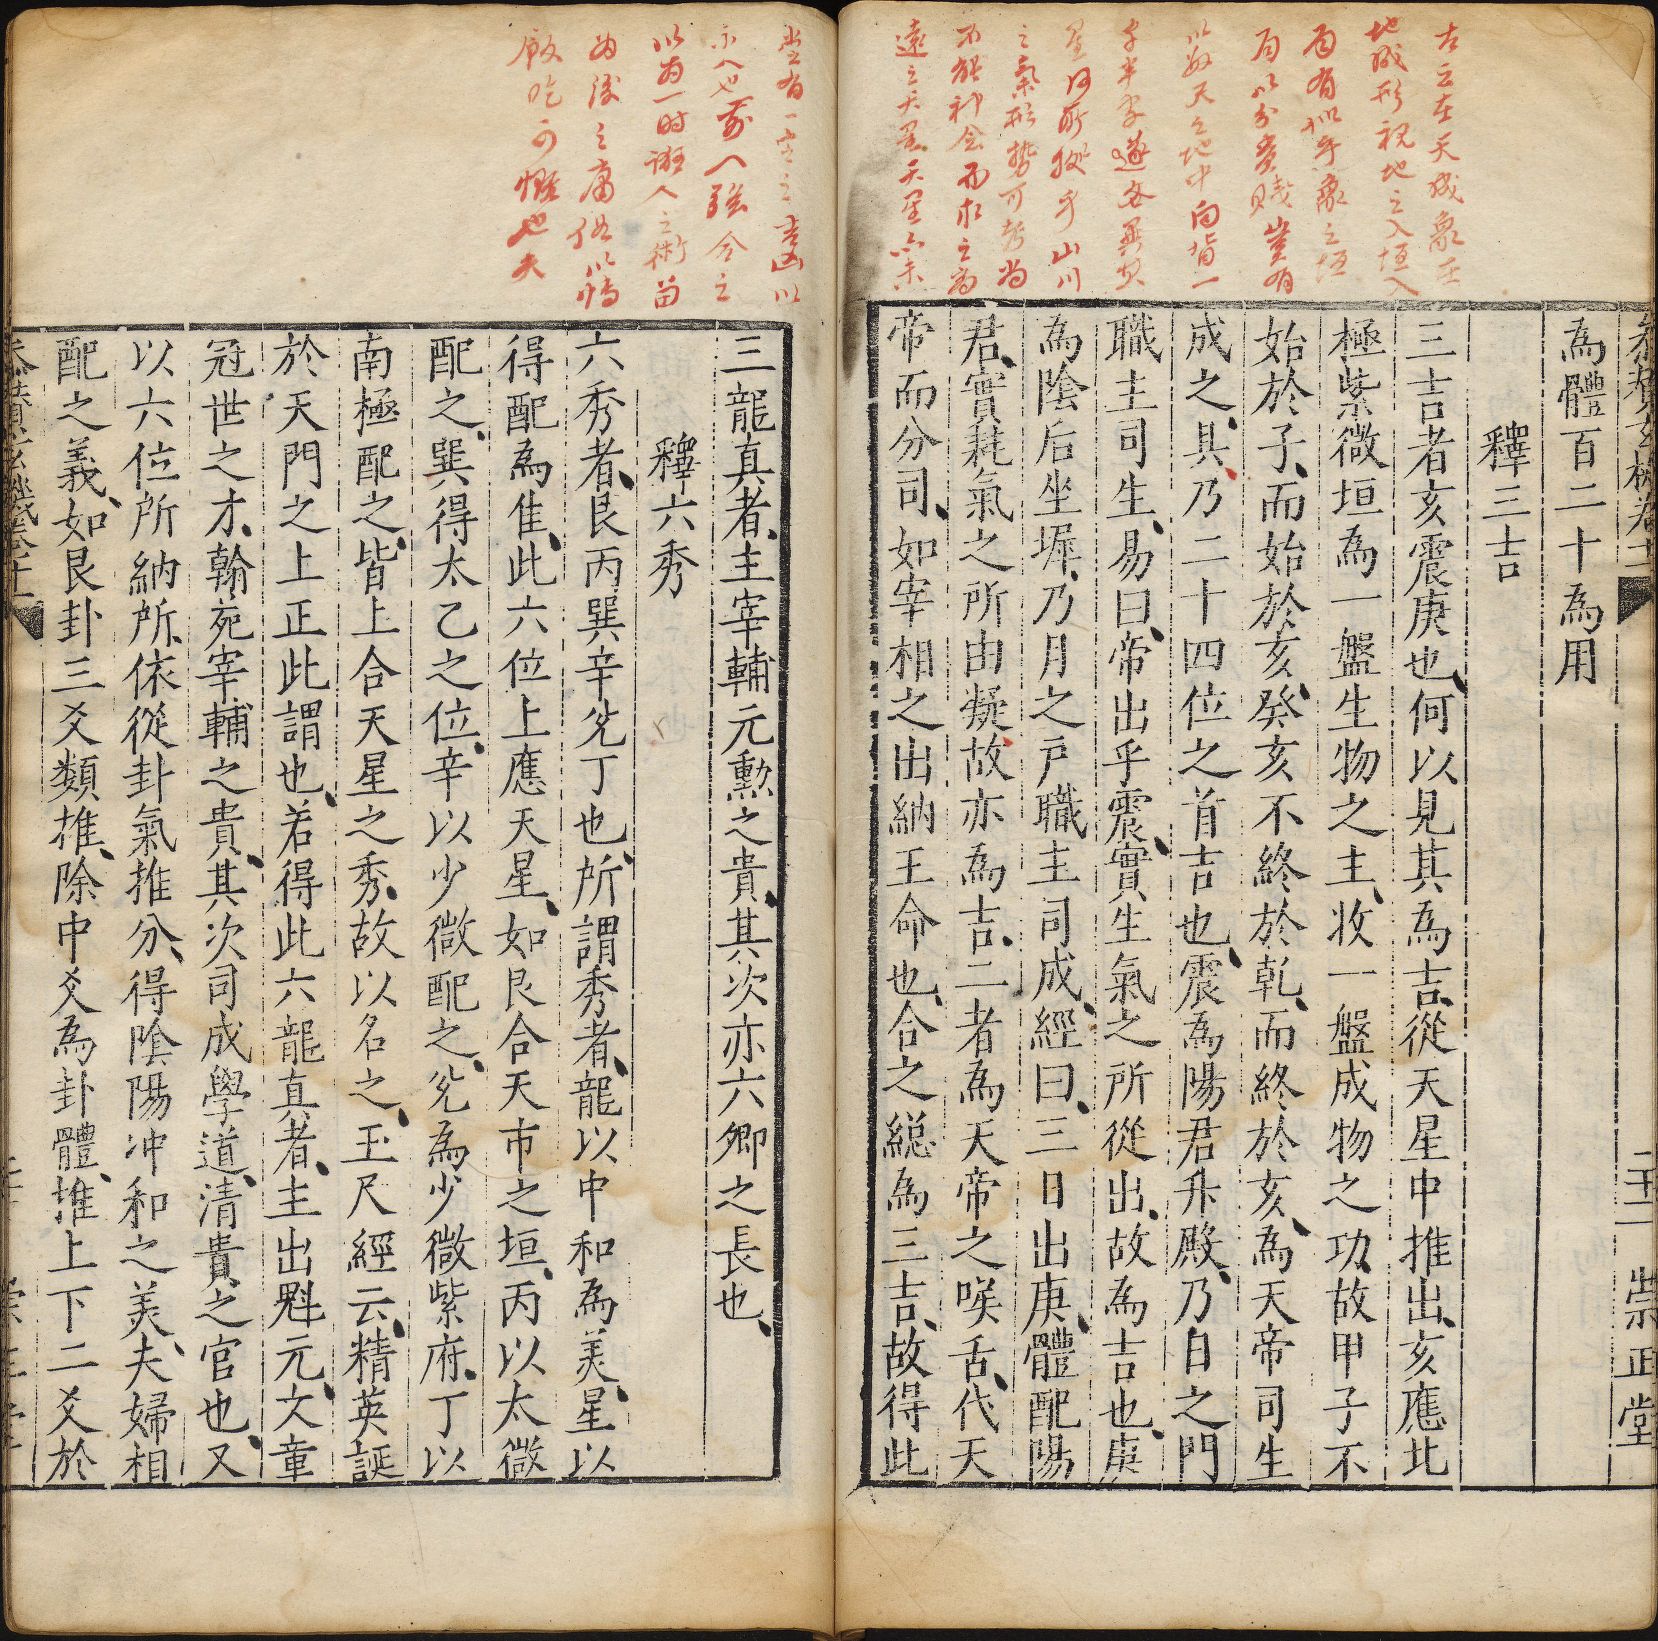 古云在天成象在
地成形視地之入垣入
局有似乎象之垣
局以分貴賤豈有
以數天之地中向背一
之氣形勢可考尚
不能神会而求之高
遠之天星天星亦未
為體百二十為用
釋三吉
三吉者亥震庚也何以見其為吉從天星中推出亥應北
極紫微垣為一盤生物之主收一盤成物之功故甲子不
始於子而始於亥癸亥不終於乾而終於亥為天帝司生
成之具乃二十四位之首吉也震為陽君升殿乃日之門
職主司生易曰帝出乎震實生氣之所從出故為吉也庚
為陰后坐墀乃月之戶職主司成經曰三日出庚體配陽
君實耗氣之所由凝故亦為吉二者為天帝之喉舌代天
帝而分司如宰相之出納王命也合之緫為三吉故得此
崇正堂
以為一時誑人之術苗
飯吃可慨也夫
三龍真者主宰輔元勲之貴其次亦六卿之長也
釋六秀
六秀者艮丙巽辛兊丁也所謂秀者龍以中和為美星以
得配為佳此六位上應天星如艮合天市之垣丙以太微
配之巽得太乙之位辛以少微配之兊為少微紫府丁以
南極配之皆上合天星之秀故以名之玉尺經云精英誕
於天門之上正此謂也若得此六龍真者主出魁元文章
冠世之才翰苑宰輔之貴其次司成學道清貴之官也又
以六位所納所依從卦氣推分得陰陽冲和之美夫婦相
配之義如艮卦三爻類推除中爻為卦體推上下二爻於